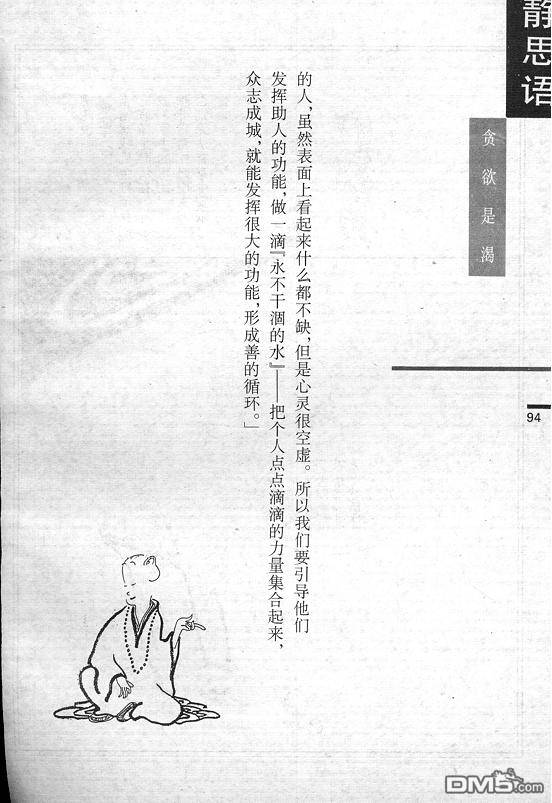 静思语
贪欲是渴
94
的人，虽然表面上看起来什么都不缺，但是心灵很空虚。所以我们要引导他们
发挥助人的功能，做一滴『永不干涸的水』——把个人点点滴滴的力量集合起来，
众志成城，就能发挥很大的功能，形成善的循环。」
DM5.com